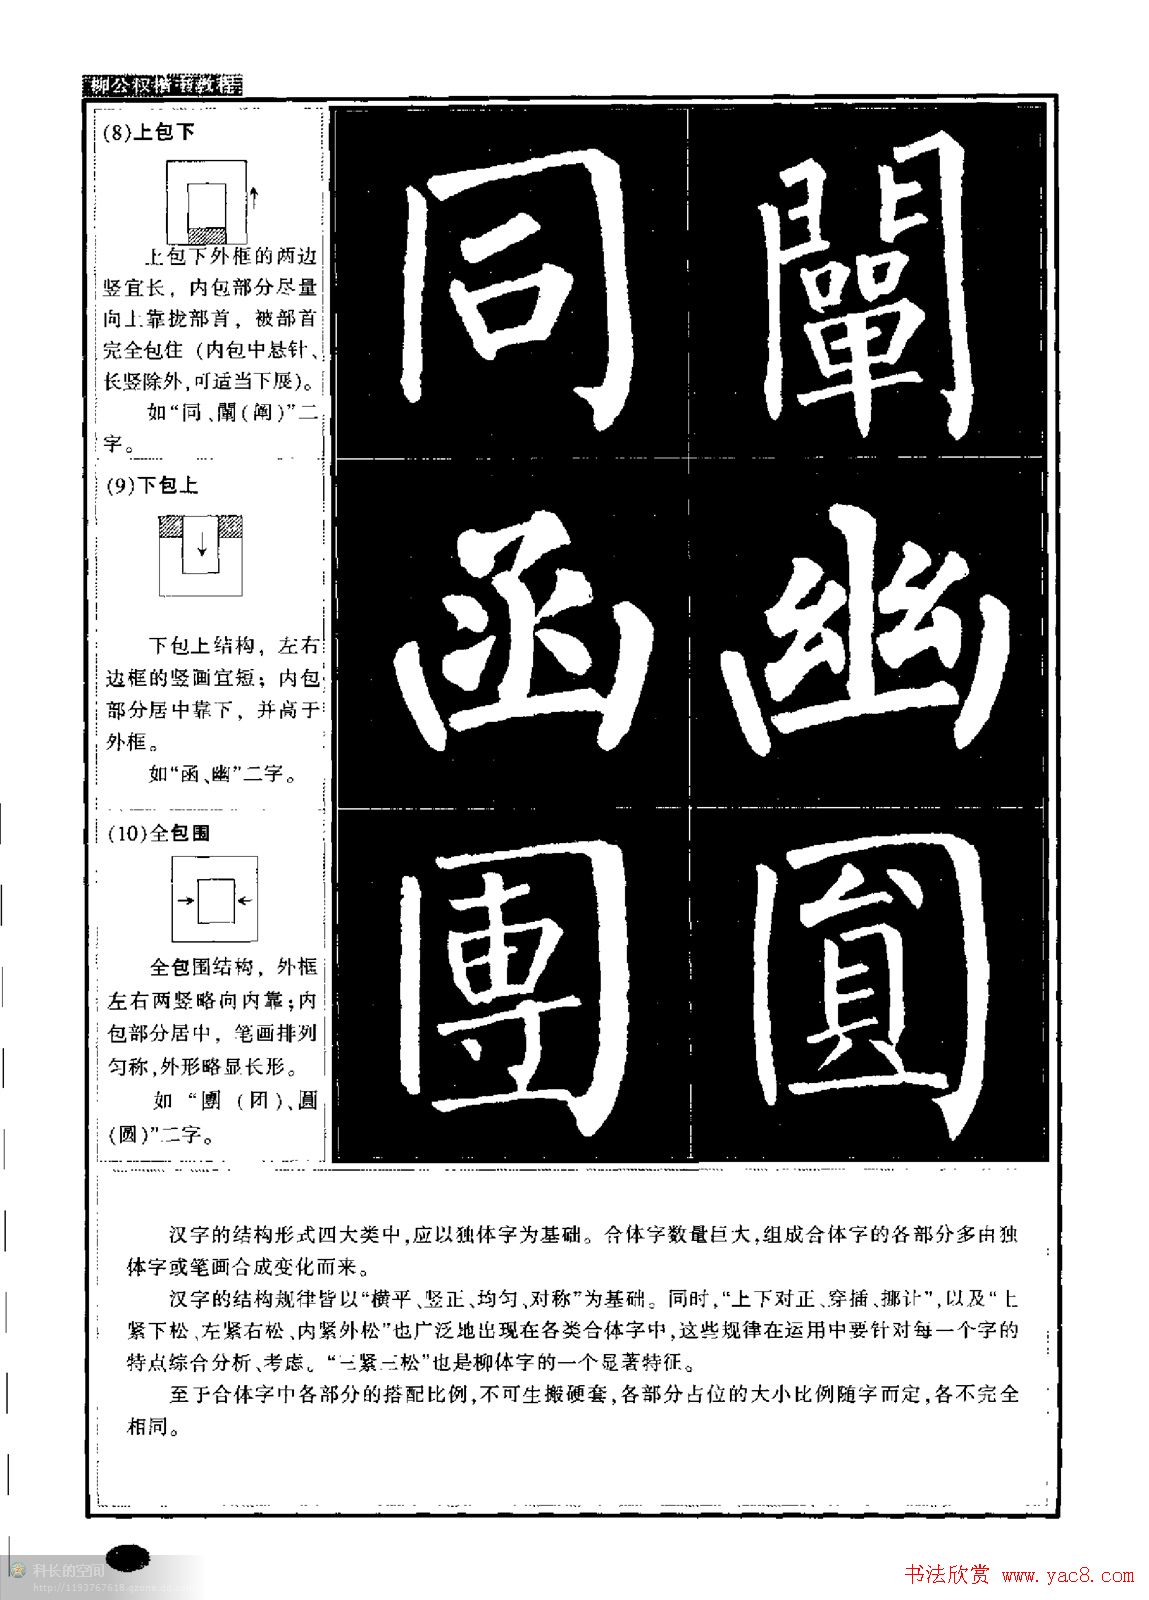 柳公权楷书教程
(8)上包下
上包下外框的两边
竖宜长，内包部分尽量
向上靠拢部首，被部首
完全包住（内包中悬针、
长竖除外,可适当下展)。
如“同、闡(阐)”二
字。
同 闡
(9)下包上
下包上结构，左右
边框的竖画宜短；内包
部分居中靠下，并高于
外框。
如“函、幽”二字。
函 幽
(10)全包围
全包围结构，外框
左右两竖略向内靠;内
包部分居中，笔画排列
匀称,外形略显长形。
如“團（团)、圓
(圆)”二字。
團 圓
汉字的结构形式四大类中,应以独体字为基础。合体字数量巨大,组成合体字的各部分多由独
体字或笔画合成变化而来。
汉字的结构规律皆以“横平、竖正、均匀、对称”为基础。同时,“上下对正、穿插、挪让”,以及“上
紧下松、左紧右松、内紧外松”也广泛地出现在各类合体字中,这些规律在运用中要针对每一个字的
特点综合分析、考虑。“三紧三松”也是柳体字的一个显著特征。
至于合体字中各部分的搭配比例,不可生搬硬套,各部分占位的大小比例随字而定,各不完全
相同。
科长的空间
http://1193767618.qzone.qq.com
书法欣赏 www.yac8.com